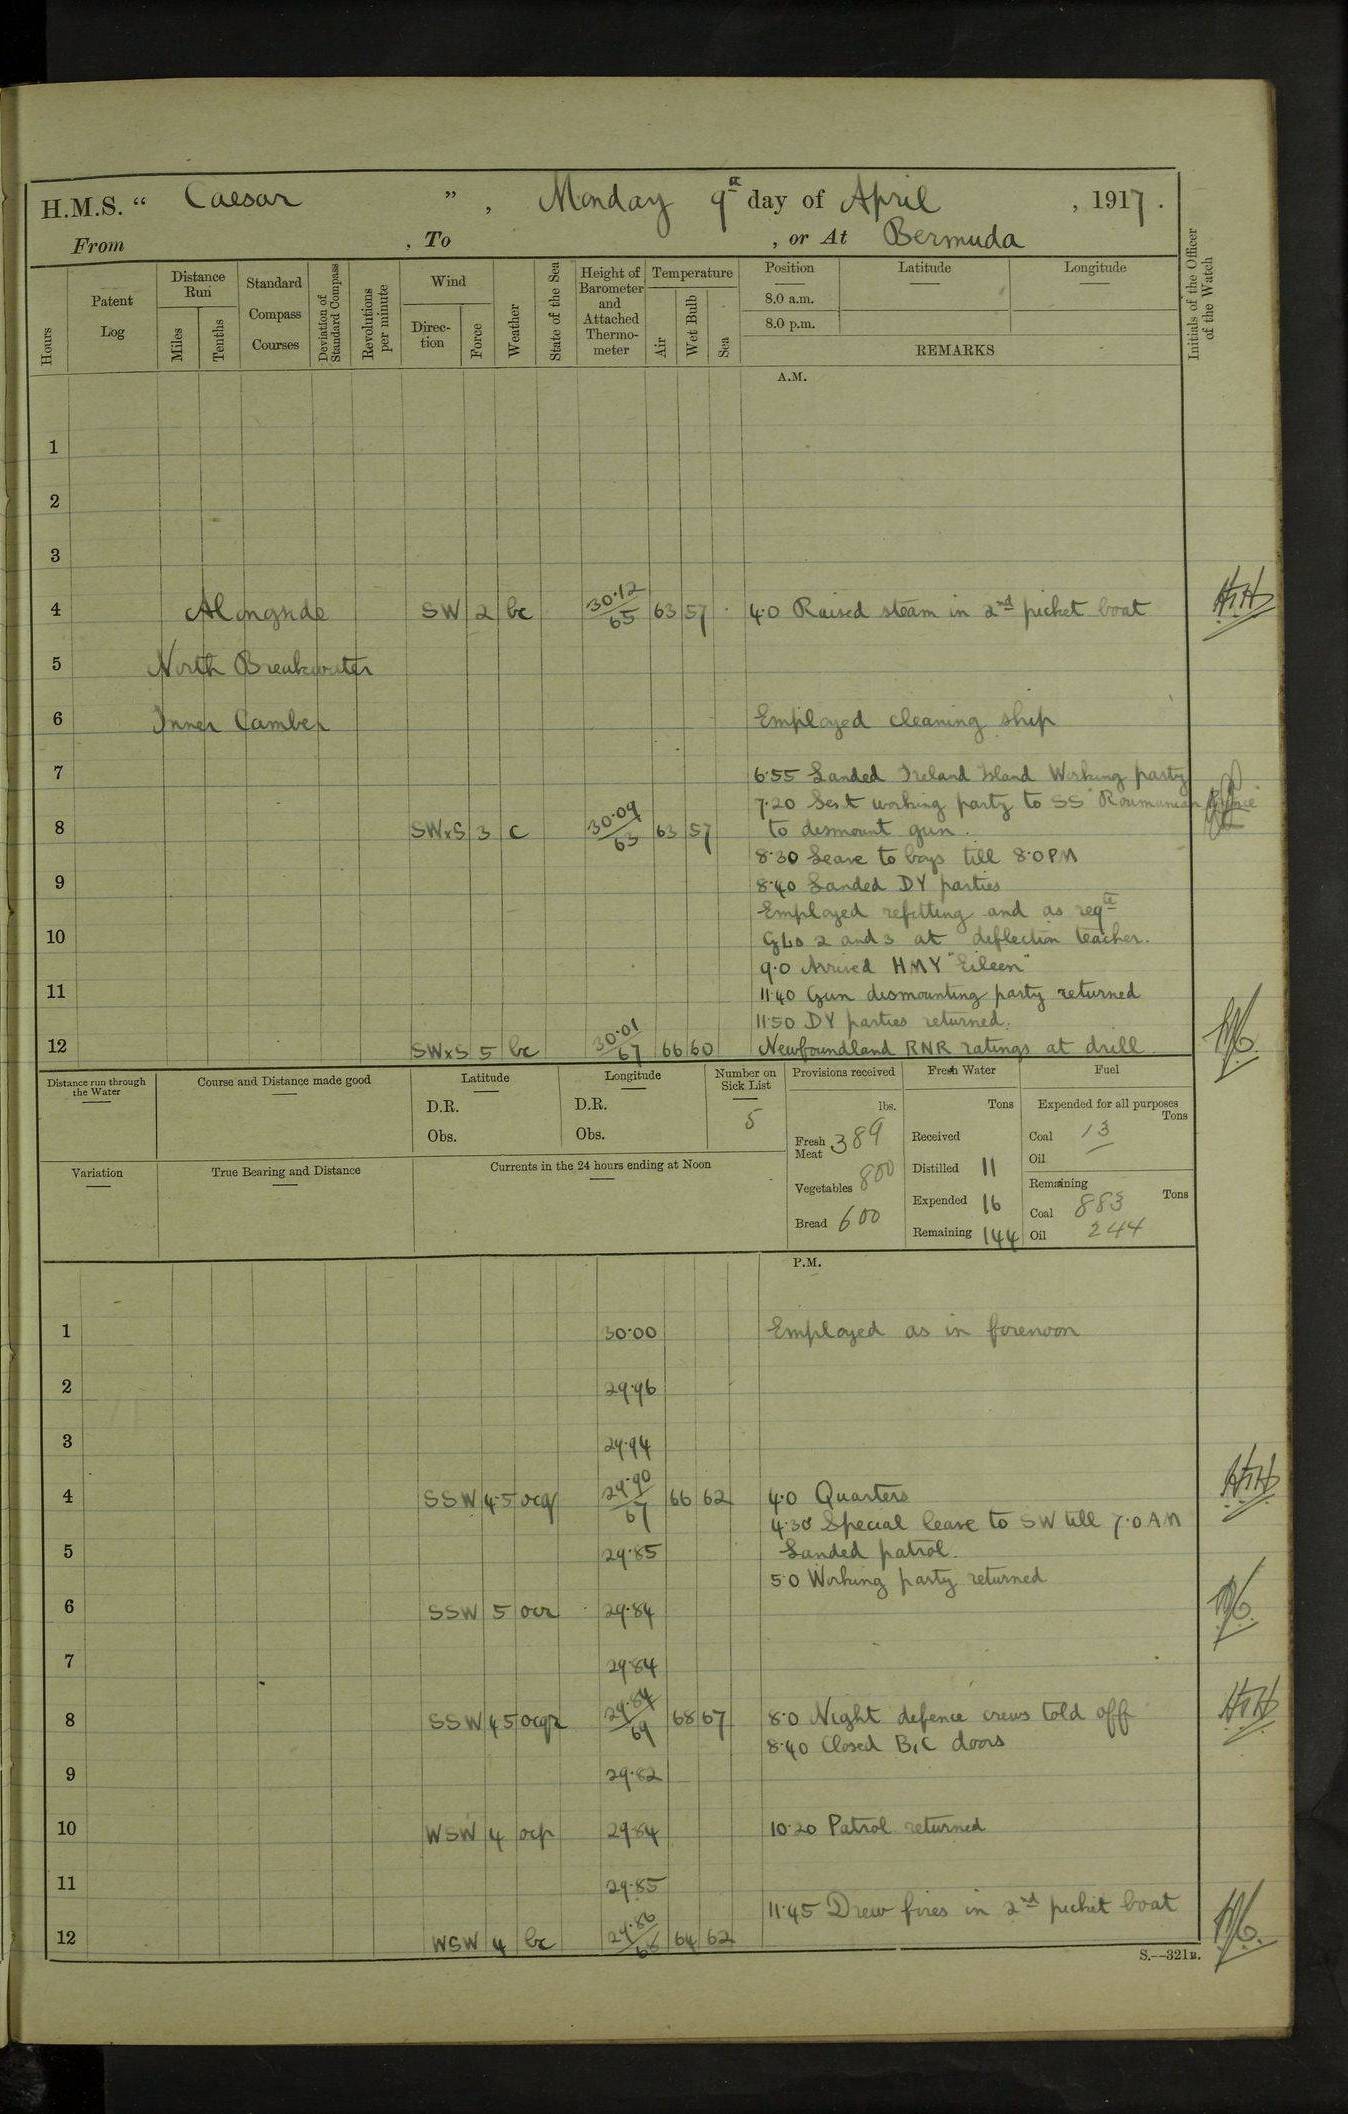 H.M.S. “ Caesar ” , Monday 9th day of April , 1917 .
From , To , or At Bermuda
Hours
Patent Log
Distance Run
Miles
Tenths
Standard Compass Courses
Deviation of Standard Compass
Revolutions per minute
Wind
Direc-tion
Force
Weather
State of the Sea
Height of Barometer and Attached Thermo-meter
Temperature
Air
Wet Bulb
Sea
Position
Latitude
Longitude
8.0 a.m.
8.0 p.m.
REMARKS
Initials of the Officer of the Watch
A.M.
1
2
3
4 Alongside SW 2 bc 30·12 65 63 57 4·0 Raised steam in 2nd picket boat
5 North Breakwater
6 Inner Camber Employed cleaning ship
7 6·55 Landed Ireland Island Working party
7·20 Sent working party to SS "Roumanian Prince"
8 SWxS 3 c 30·09 63 63 57 to dismount gun.
8·30 Leave to boys till 8·0 PM
9 8·40 Landed DY parties
Employed refitting and as reqte
10 GLs 2 and 3 at deflection teacher.
9·0 Arrived HMY "Eileen"
11 11·40 Gun dismounting party returned
11·50 DY parties returned.
12 SWxS 5 bc 30·01 67 66 60 Newfoundland RNR ratings at drill
Distance run through the Water
Course and Distance made good
Latitude
D.R.
Obs.
Longitude
D.R.
Obs.
Number on Sick List
5
Provisions received
lbs.
Fresh Meat 389
Vegetables 800
Bread 600
Fresh Water
Tons
Received
Distilled 11
Expended 16
Remaining 144
Fuel
Expended for all purposes
Tons
Coal 13
Oil
Remaining
Tons
Coal 883
Oil 244
Variation
True Bearing and Distance
Currents in the 24 hours ending at Noon
P.M.
1 30·00 Employed as in forenoon
2 29·96
3 29·94
4 SSW 4·5 ocq 29·90 67 66 62 4·0 Quarters
4·30 Special leave to SW till 7·0 AM
5 29·85 Landed patrol.
5·0 Working party returned
6 SSW 5 ocr 29·84
7 29·84
8 SSW 4·5 ocqr 29·84 69 68 67 8·0 Night defence crews told off
8·40 Closed B,C doors
9 29·82
10 WSW 4 ocp 29·84 10·20 Patrol returned
11 29·85
11·45 Drew fires in 2nd picket boat
12 WSW 4 bc 29·86 68 64 62
S.—321B.